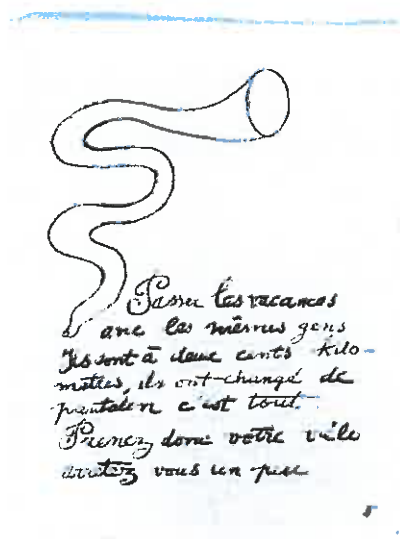 Passer les vacances
avec les mêmes gens
Ils sont à deux cents kilo-
mètres, ils ont changé de
pantalon c'est tout.
Prenez donc votre vélo
arrêtez vous un peu